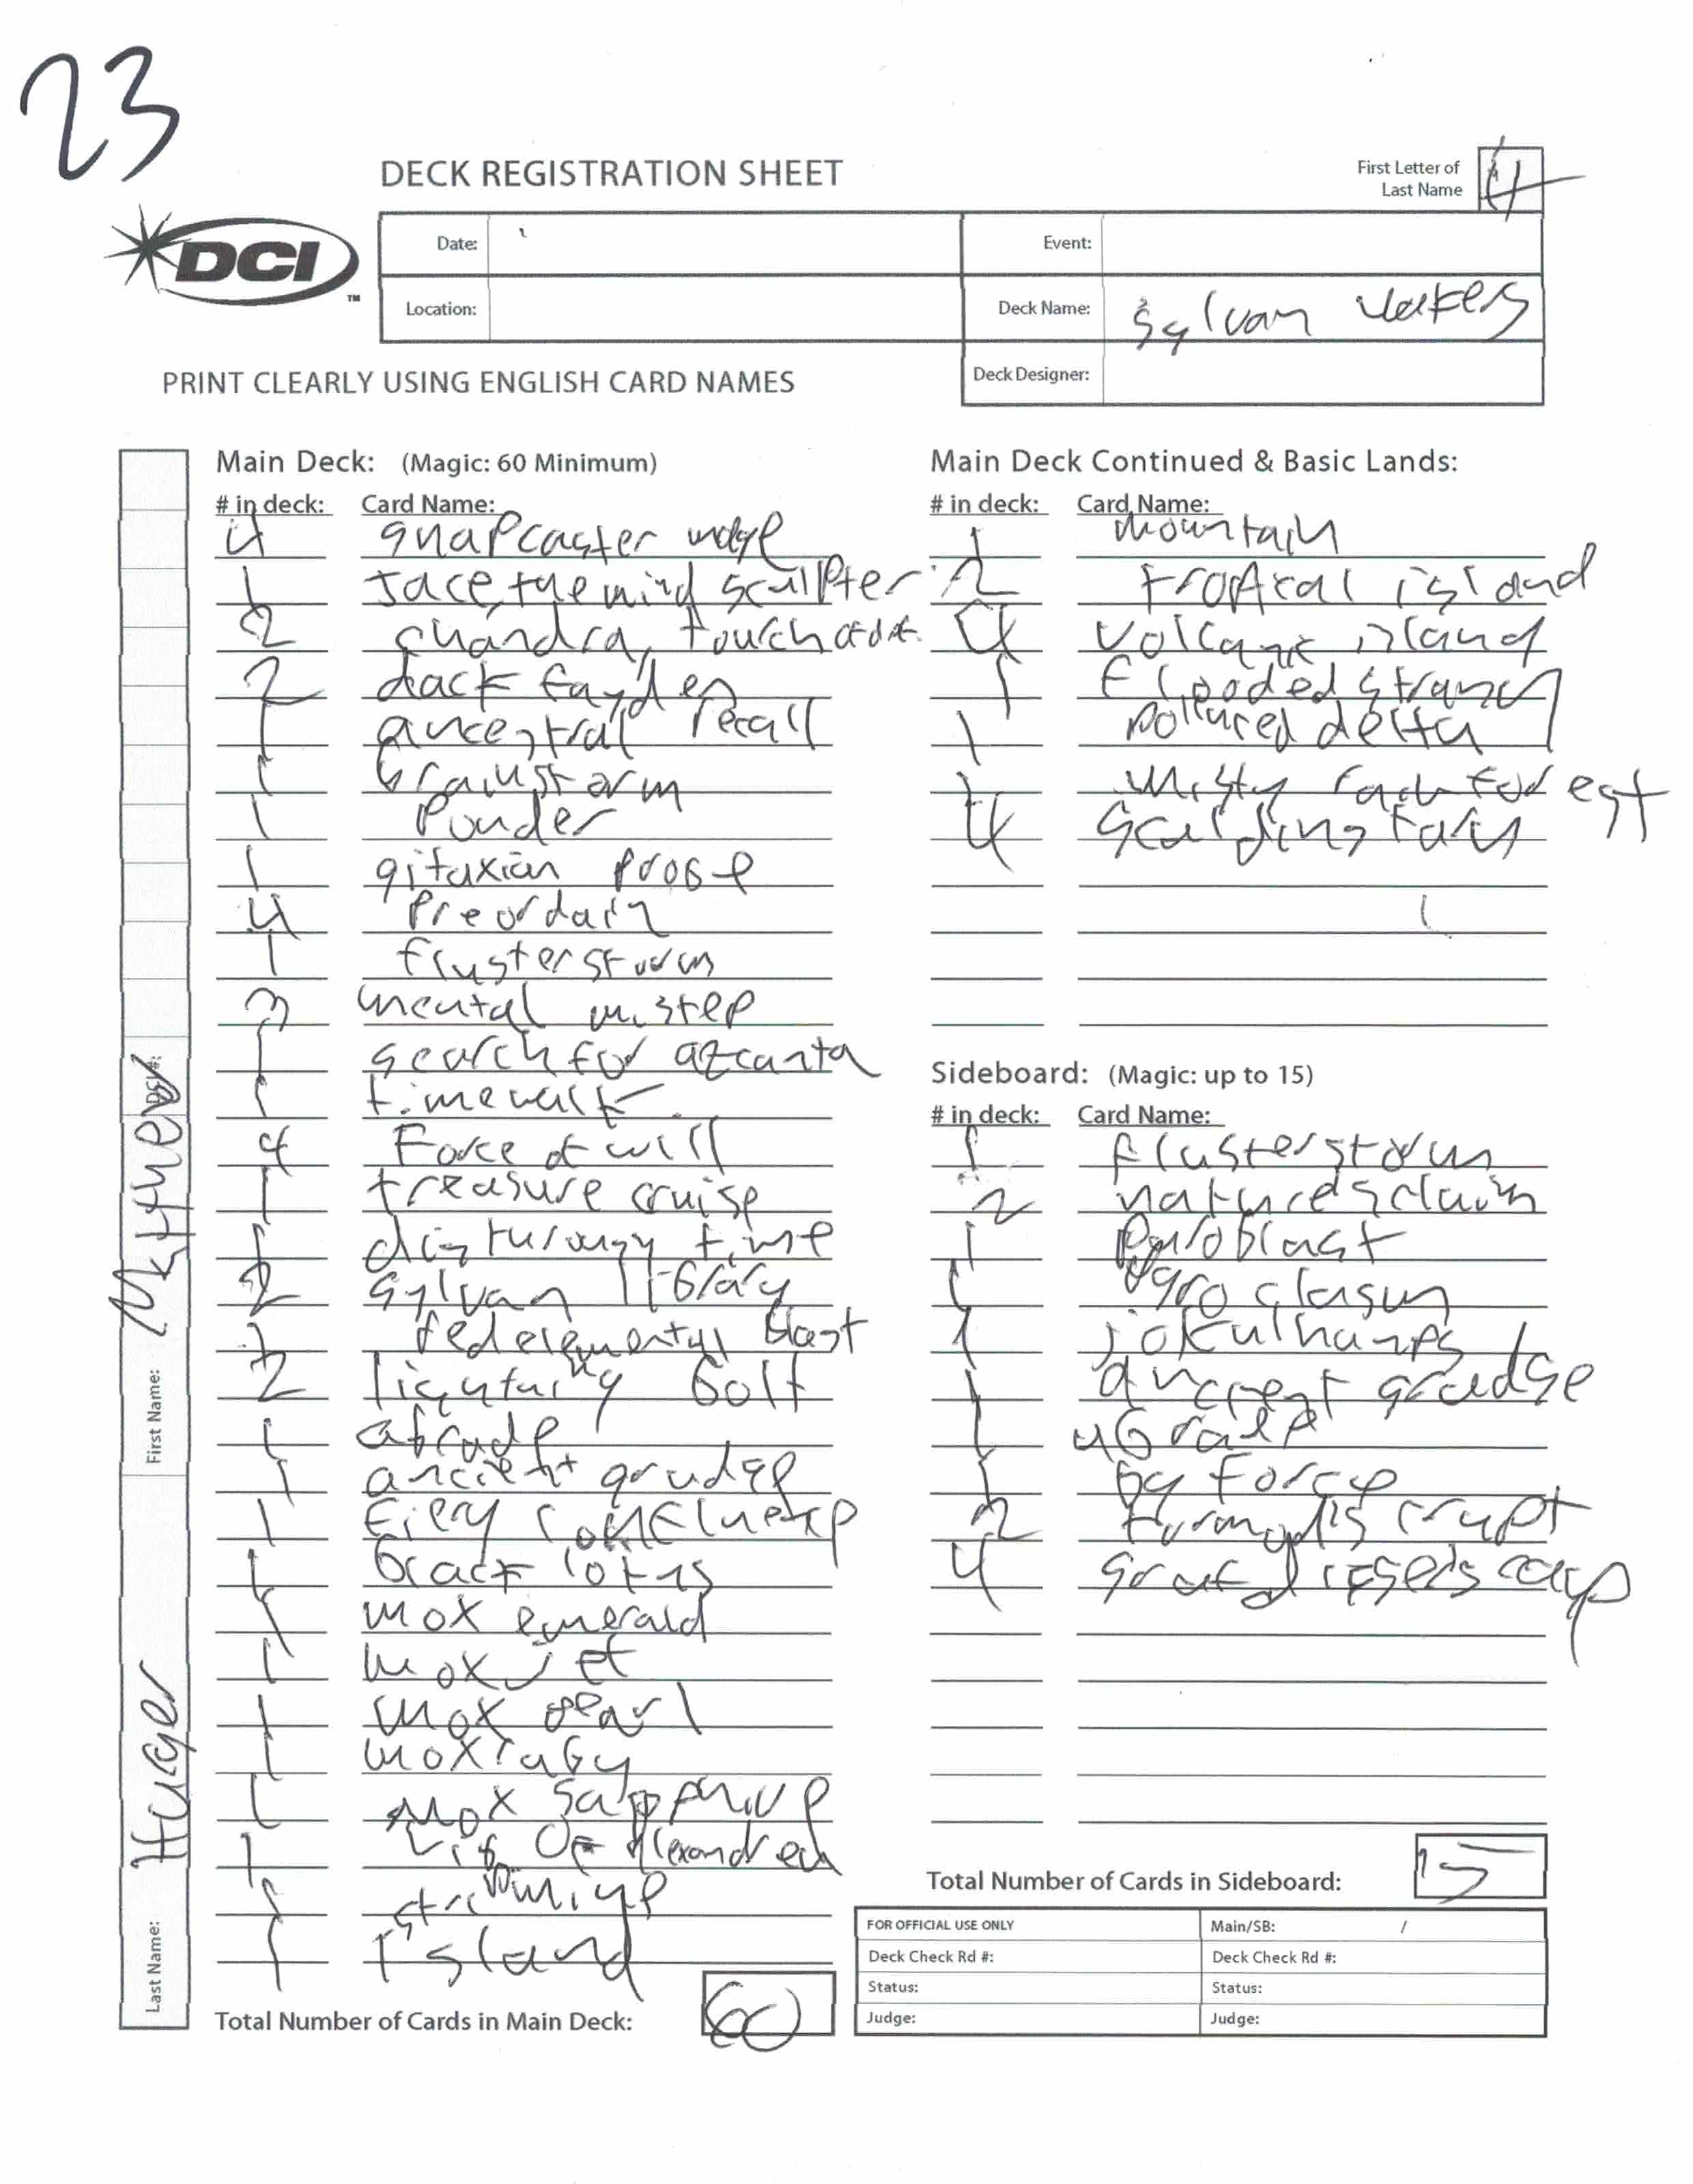 23
DECK REGISTRATION SHEET
First Letter of
Last Name
H
DCI
TM
Date:
Event:
Location:
Deck Name: Sylvan
PRINT CLEARLY USING ENGLISH CARD NAMES
Deck Designer:
Main Deck: (Magic: 60 Minimum)
# in deck: Card Name:
4 snapcaster mage
1 Jace, the mind sculpter
2 chandra, tourch of d.
2 dack fayden
1 ancestral recall
1 brainstorm
1 Ponder
1 gitaxian probe
4 Preordain
1 flusterstorm
3 mental mistep
1 search for azcanta
1 time walk
4 Force of will
1 treasure cruise
1 dig thru time
2 sylvan library
1 red elemental blast
2 lightning bolt
1 abrade
1 ancient grudge
1 Fiery confluence
1 black lotus
1 mox emerald
1 mox jet
1 mox pearl
1 mox ruby
1 mox sapphire
1 Lib Of Alexandria
1 strip mine
1 Island
Total Number of Cards in Main Deck: 60
Main Deck Continued & Basic Lands:
# in deck: Card Name:
1 mountain
2 tropical island
4 volcanic island
1 Flooded strand
1 polluted delta
misty rain forest
4 scalding tarn
Sideboard: (Magic: up to 15)
# in deck: Card Name:
1 flusterstorm
2 natures claim
1 Pyroblast
1
1 jokulhaups
1 ancient grudge
1
1 by Force
2 tormod's crypt
4 grafdiggers cage
Total Number of Cards in Sideboard: 15
FOR OFFICIAL USE ONLY
Main/SB: /
Deck Check Rd #:
Deck Check Rd #:
Status:
Status:
Judge:
Judge:
Last Name:
First Name: Matthew
DCI #: